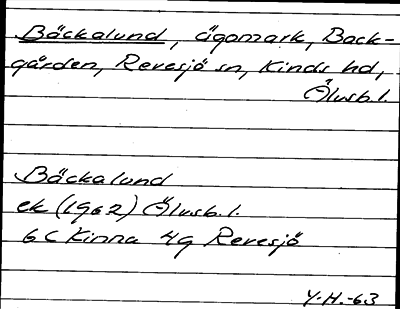 Bäckalund, ägomark, Back-
gården, Revesjö sn, Kinds hd,
Älvsb.l.
Bäckalund
ek (1962) Älvsb.l.
6C Kinna 4g Revesjö
Y.H.-63